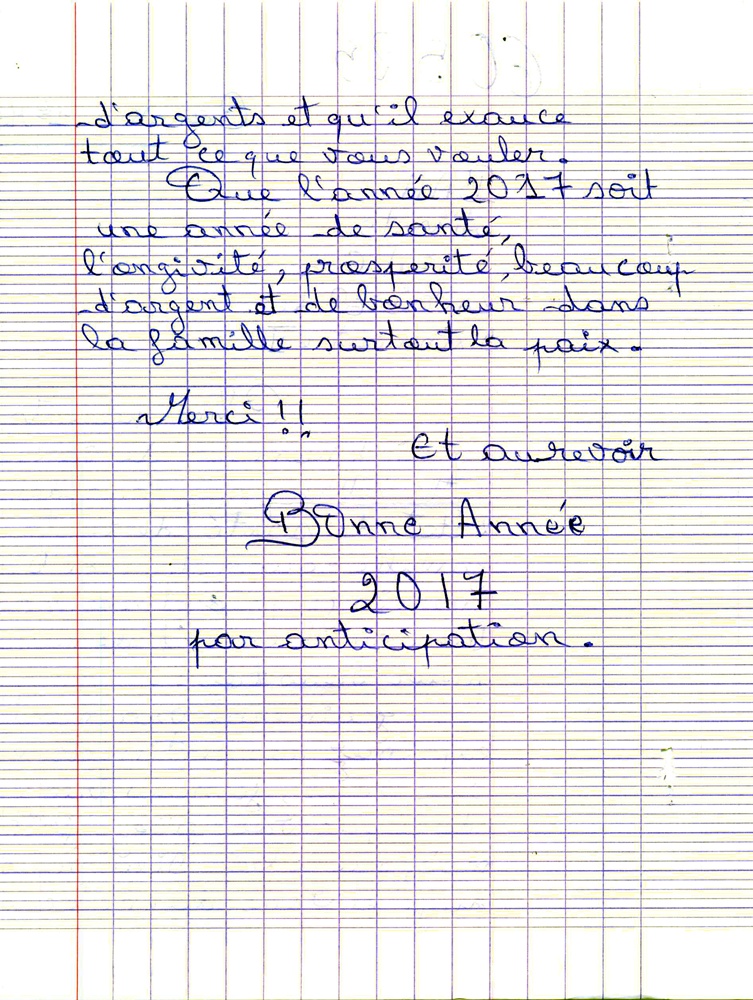 d'argents et qu'il exauce
tout ce que vous vouler.
Que l'année 2017 soit
une année de santé,
l'ongivité, prosperité, beaucoup
d'argent et de bonheur dans
la famille surtout la paix.
Merci !!
et aurevoir
Bonne Année
2017
par anticipation.